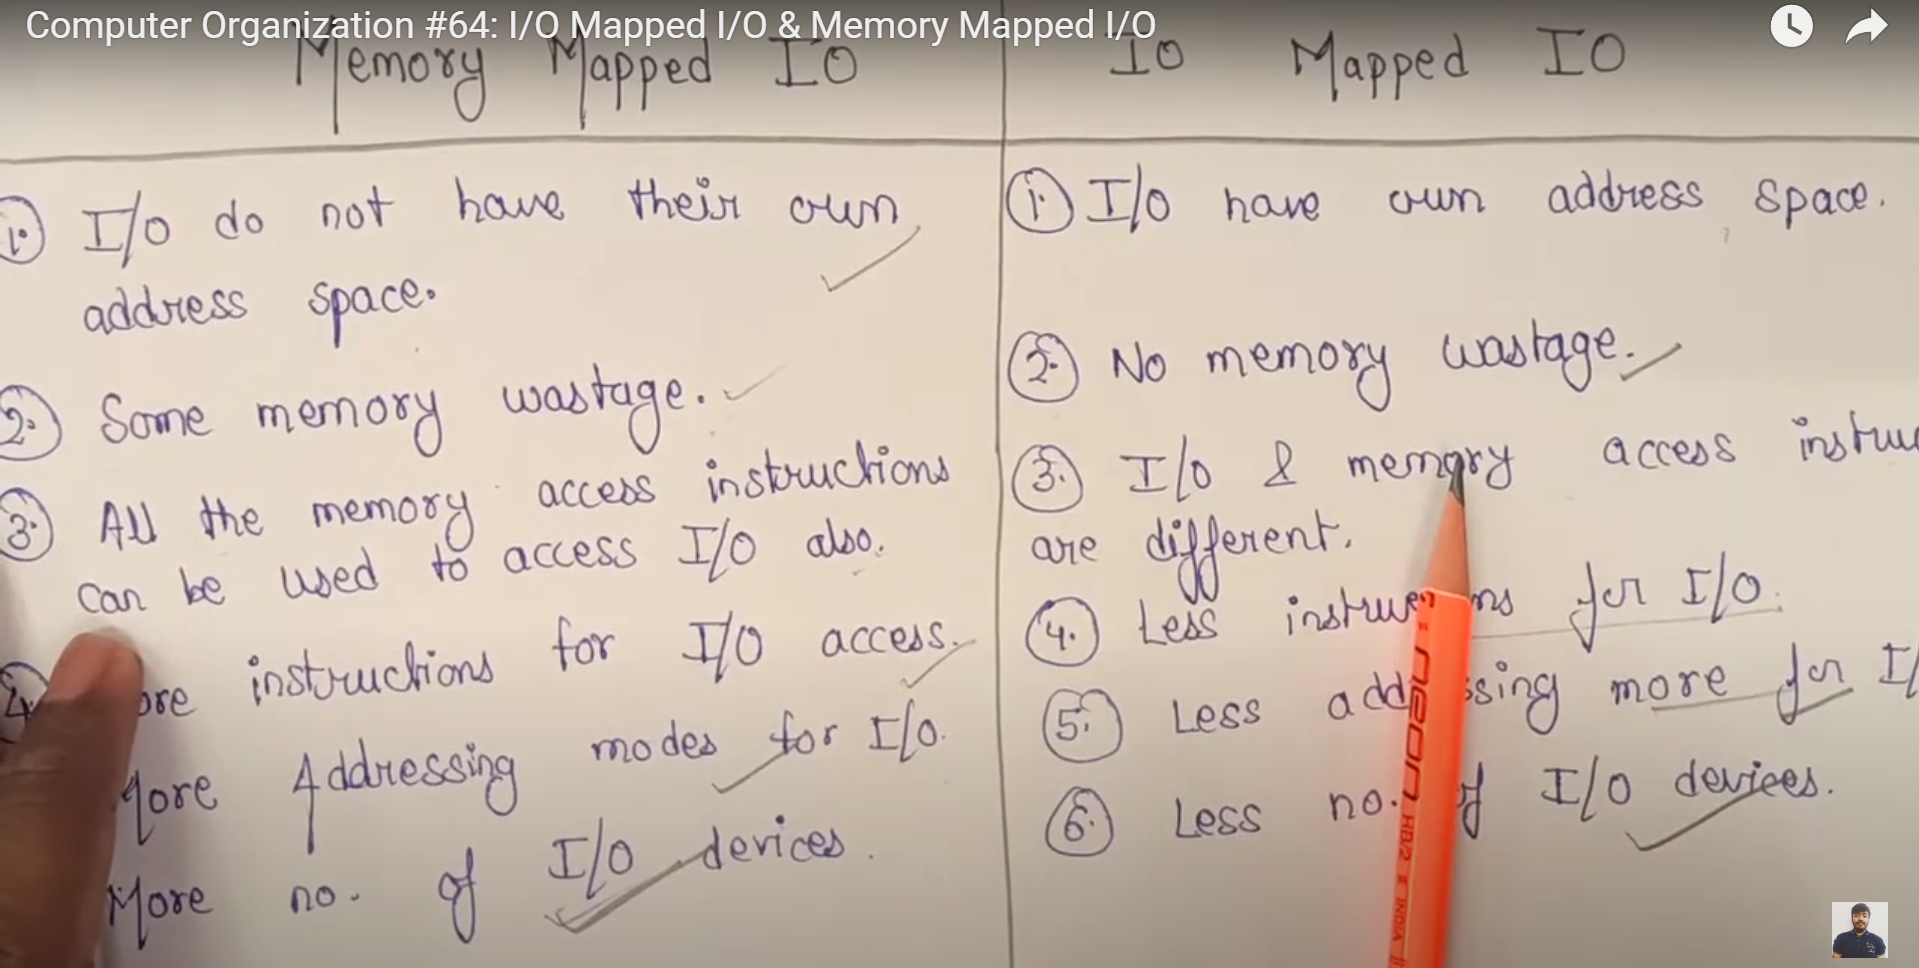 Computer Organization #64: I/O Mapped I/O & Memory Mapped I/O
Memory Mapped IO
1. I/O do not have their own
address space.
2. Some memory wastage.
3. All the memory access instructions
can be used to access I/O also.
4. instructions for I/O access.
More Addressing modes for I/O.
More no. of I/O devices.
IO Mapped IO
1. I/O have own address space.
2. No memory wastage.
3. I/O & memory access
are different.
4. Less for I/O.
5. Less more for
6. Less no. of I/O devices.
neon HB/2 INDIA